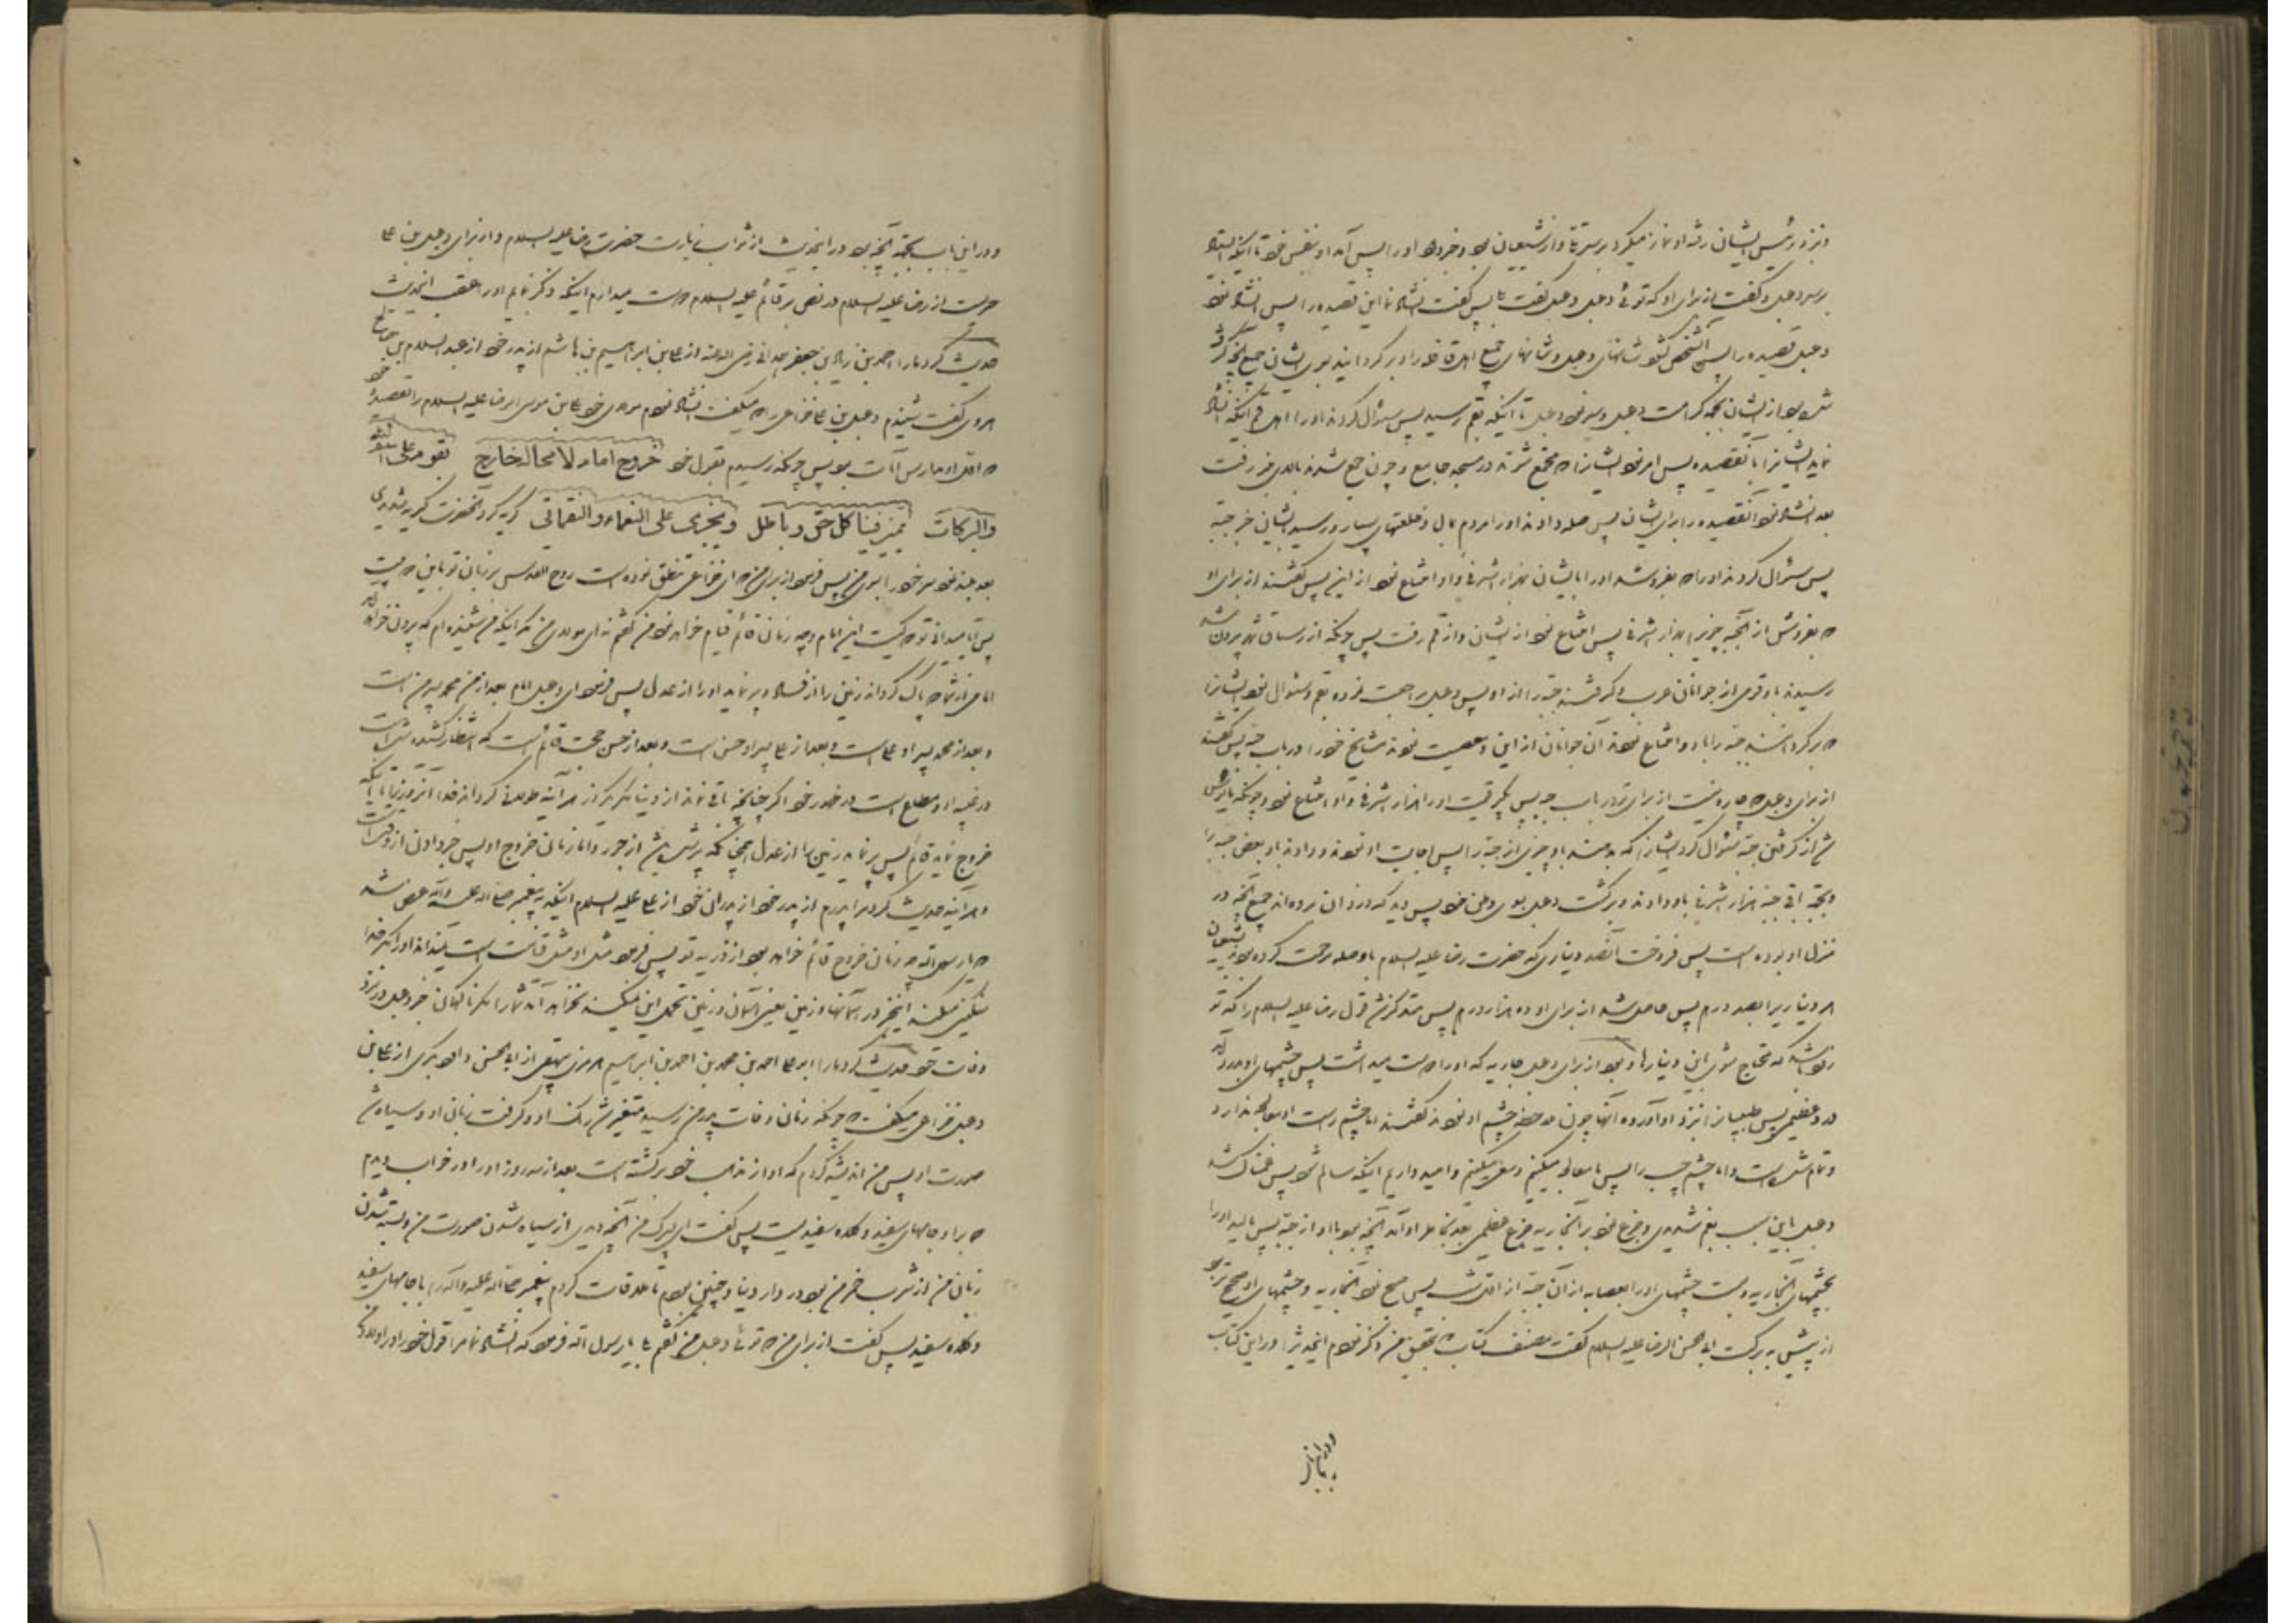 و نزد رئیس ایشان رفت و او نماز میکرد بر سر تلّ و از شیعیان بود و خبر داد او را پس آمد او بنفس خود تا اینکه ایستاد
بر سر دعبل و گفت از برای او که توئی دعبل دعبل گفت بلی پس گفت انشاد نما این قصیده را پس انشاد نمود
دعبل قصیده را پس آنشخص گشود شانهای دعبل و شانهای جمیع اهل قافله را و بر گردانید بسوی ایشان جمیع آنچه گرفته
شده بود از ایشان بجهة کرامت دعبل و سیر نمود دعبل تا اینکه بقم رسید پس سؤال کردند او را اهل قم اینکه انشاد
نماید ایشانرا بآنقصیده پس امر نمود ایشانرا که مجتمع شوند در مسجد جامع و چون جمع شدند بالای منبر رفت
بعد انشاد نمود آنقصیده را برای ایشان پس صله دادند او را مردم بمال و خلعتهای بسیار و رسید بایشان خبر جبّه
پس سؤال کردند او را که بفروشد او را بایشان بهزار اشرفی و او امتناع نمود از این پس گفتند از برای او
که بفروش از آنجبه چیزیرا بهزار اشرفی پس امتناع نمود از ایشان و از قم رفت پس چونکه از رستاق شهر بیرون شد
رسیدند باو قومی از جوانان عرب و گرفتند جبّه را از او پس دعبل مراجعت نموده بقم و سئوال نمود ایشانرا
که بر گردانند جبّه را باو و امتناع نمودند آن جوانان از این و معصیت نمودند مشایخ خود را در باب جبّه پس گفتند
از برای دعبل که چاره نیست از برای تو در باب جبّه پس بگیر قیمت او را هزار اشرفی و او امتناع نمود و چونکه مأیوس
شد از گرفتن جبّه سئوال کرد ایشانرا که بدهند باو چیزی از جبّه را پس اجابت او نمودند و دادند باو بعض جبّه را
و بجهة باقی جبّه هزار اشرفی باو دادند و برگشت دعبل بسوی وطن خود پس دید که دزدان برده‌اند جمیع آنچه در
منزل او بوده است پس فروخت آنصد دیناری که حضرت رضا علیه السلام باو صله مرحمت کرده بود بشیعیان
هر دیناریرا بصد درم پس حاصل شد از برای او ده هزار درم پس متذکر شد قول رضا علیه السلام را که تو
زود باشد که محتاج شوی باین دینارها و بود از برای دعبل جاریه که او را دوست میداشت پس چشمهای او بدرد آمد
درد عظیمی پس طبیبانرا نزد او آورده آنها چون ملاحظه چشم او نمودند گفتند اما چشم راست او معالجه ندارد
و تمام شده است و اما چشم چپ را پس ما معالجه میکنیم و سعی میکنیم و امید داریم اینکه سالم شود پس غمناک شد
دعبل باین سبب بغم شدیدی و جزع نمود بر آنجاریه جزع عظیمی بعد بخاطر او آمد آنچه بود با او از جبّه پس مالید او را
بچشمهای آنجاریه و بست چشمهای او را بعصابه از آن جبّه از اول شب پس صبح نمود آنجاریه و چشمهای او صحیح تر بود
از پیش ببرکت ابی الحسن الرضا علیه السلام گفت مصنف کتاب که بتحقیق من ذکر نمودم اینحدیثرا در این کتاب
و در این باب بجهة آنچه بود در اینحدیث از ثواب زیارت حضرت رضا علیه السلام و از برای دعبل بن علی
حدیثیست از رضا علیه السلام در نص بر قائم علیه السلام دوست میدارم اینکه ذکر نمایم او را عقب اینحدیث
حدیث کرد ما را احمد بن زیاد بن جعفر همدانی رضی الله عنه از علی بن ابراهیم بن هاشم از پدر خود از عبد السلام بن صالح
هروی گفت شنیدم دعبل بن علی خزاعی را که میگفت انشاد نمودم مولای خود علی بن موسی الرضا علیه السلام را قصیده خود
که اول او مدارس آیات بود پس چونکه رسیدم بقول خود خروج امام لا محالة خارج یقوم علی اسم الله
والبرکات یمیز فینا کل حق و باطل و یجزی علی النعماء و النقمات گریه کرد آنحضرت گریه شدیدی
بعد بلند نمود سر خود را بسوی من پس فرمود از برای من که ای خزاعی نطق نموده است روح القدس بر زبان تو باین دو بیت
پس آیا میدانی تو که کیست این امام و چه زمان قائم قیام خواهد نمود من گفتم نه ای مولای من مگر اینکه من شنیده‌ام که بیرون خواهد آمد
امامی از شما که پاک گرداند زمین را از فساد و پر نماید او را از عدل پس فرمود ای دعبل امام بعد از من محمد پسر من است
و بعد از محمد پسر او علی است و بعد از علی پسر او حسن است و بعد از حسن حجت قائم است که انتظار کشیده شده است
در غیبة او و مطاع است در ظهور خود اگر چنانچه باقی نماند از دنیا مگر یکروز هر آینه طولانی گرداند خدا آنروز را تا اینکه
خروج نماید قائم پس پر نماید زمین را از عدل همچنانکه پر شده باشد از جور و اما زمان خروج او پس خبر دادن از وقت است
و هر آینه حدیث کرد مرا پدرم از پدر خود از پدران خود از علی علیه السلام اینکه به پیغمبر صلی الله علیه و آله عرض شد
که یا رسول الله چه زمان خروج قائم خواهد بود از ذریه تو پس فرمود مثل او مثل قیامت است نمیداند او را مگر خدا
سنگینی میکند اینخبر در آسمانها و زمین یعنی آسمان و زمین تحمل این نمیکنند نخواهد آمد شما را مگر ناگهان خبر دعبل در نزد
وفات خود حدیث کرد ما را ابو علی احمد بن محمد بن احمد بن ابراهیم هرمزی بیهقی از ابی الحسن داود بکری از علی بن
دعبل خزاعی میگفت که چونکه زمان وفات پدر من رسید متغیر شد رنگ او و گرفت زبان او و سیاه شد
صورت او پس من اندیشه کردم که او از مذهب خود برگشته است بعد از سه روز او را در خواب دیدم
که بر او جامهای سفید و کلاه سفید است پس گفت ای پسرک من آنچه دیدی از سیاه شدن صورت من و بسته شدن
زبان من از شرب خمر من بود در دار دنیا و چنین بودم تا ملاقات کردم پیغمبر صلی الله علیه و آله را با جامهای سفید
و کلاه سفید پس گفت از برای من که توئی دعبل من گفتم بلی یا رسول الله فرمود که انشاد نما مرا قول خود را در اولاد